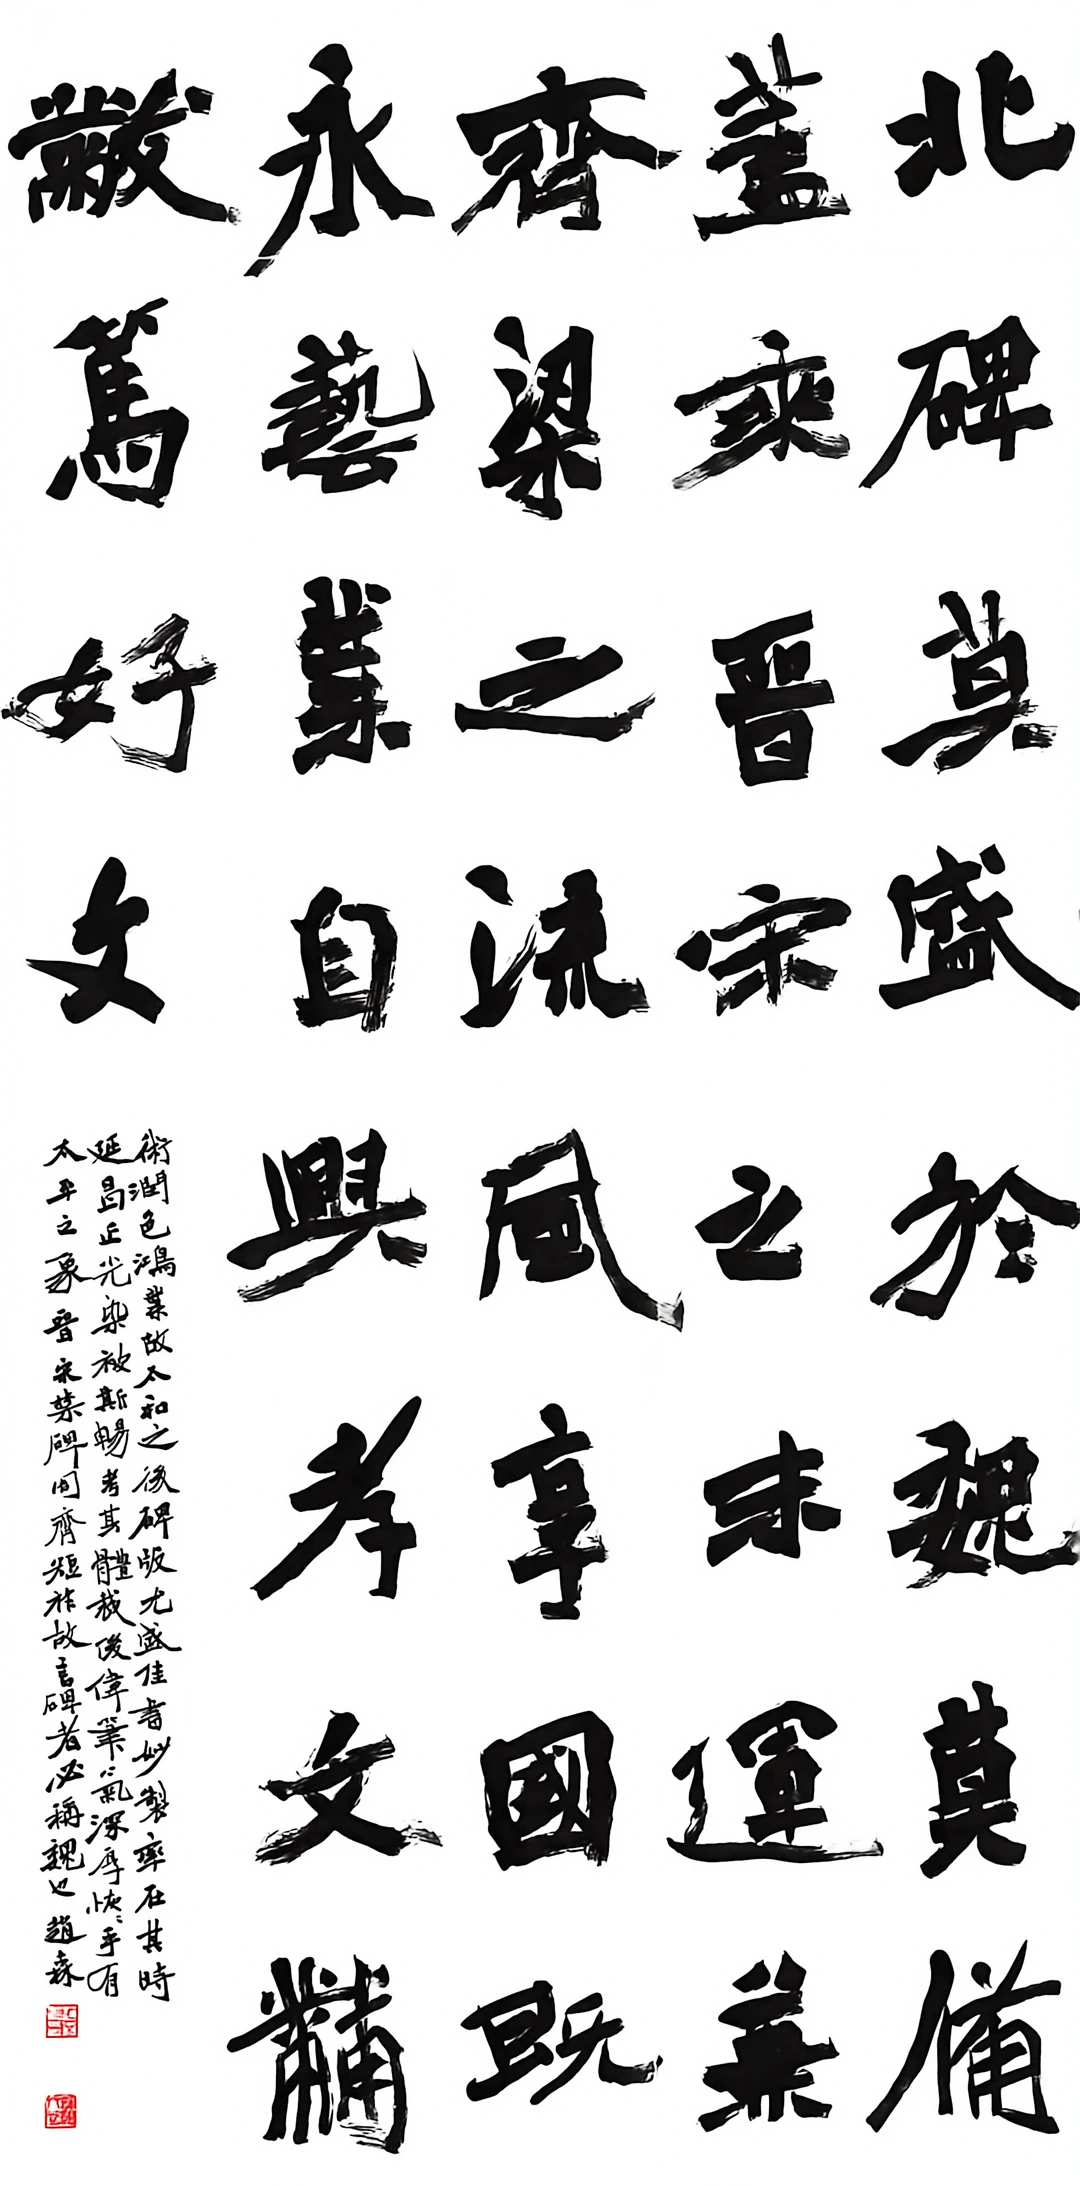 北碑莫盛於魏莫備
蓋乘晉宋之末運兼
齊梁之流風享國既
永藝業自興孝文黼
黻篤好文
術潤色鴻業故太和之後碑版尤盛佳書妙製率在其時
延昌正光染被斯暢考其體裁俊偉筆氣深厚恢〻乎有
太平之象晉宋禁碑周齊短祚故言碑者必稱魏也趙森